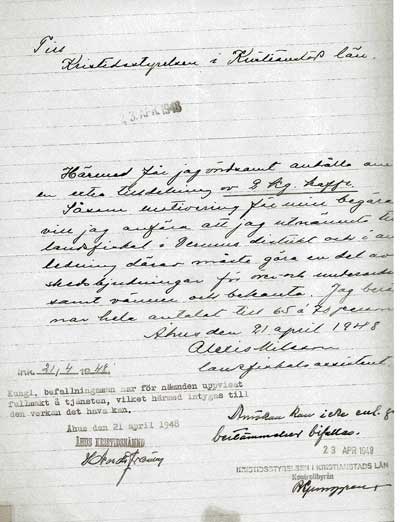 Till
Kristidsstyrelsen i Kristianstads län.
23 APR 1948
Härmed får jag vördsamt anhålla om
en extra tilldelning av 3 kg. kaffe.
Såsom motivering för min begäran
vill jag anföra att jag utnämnts til
landsfiskal i distrikt och i an
ledning därav måste göra en del av
skedsbjudningar för
samt vänner och bekanta. Jag berä
nar hela antalet till 65 à 70 personer
Åhus den 21 april 1948
Alexis Nilsson
landsfiskalsassistent.
Ink. 21/4 1948.
Kungl. befallningsman har för nämnden uppvisat
fullmakt å tjänsten, vilket härmed intygas till
den verkan det hava kan.
Åhus den 21 april 1948
ÅHUS KRISTIDSNÄMND
Ansökan kan icke enl. g
bestämmelser bifallas.
23 APR 1948
KRISTIDSSTYRELSEN I KRISTIANSTADS LÄN
Kontrollbyrån